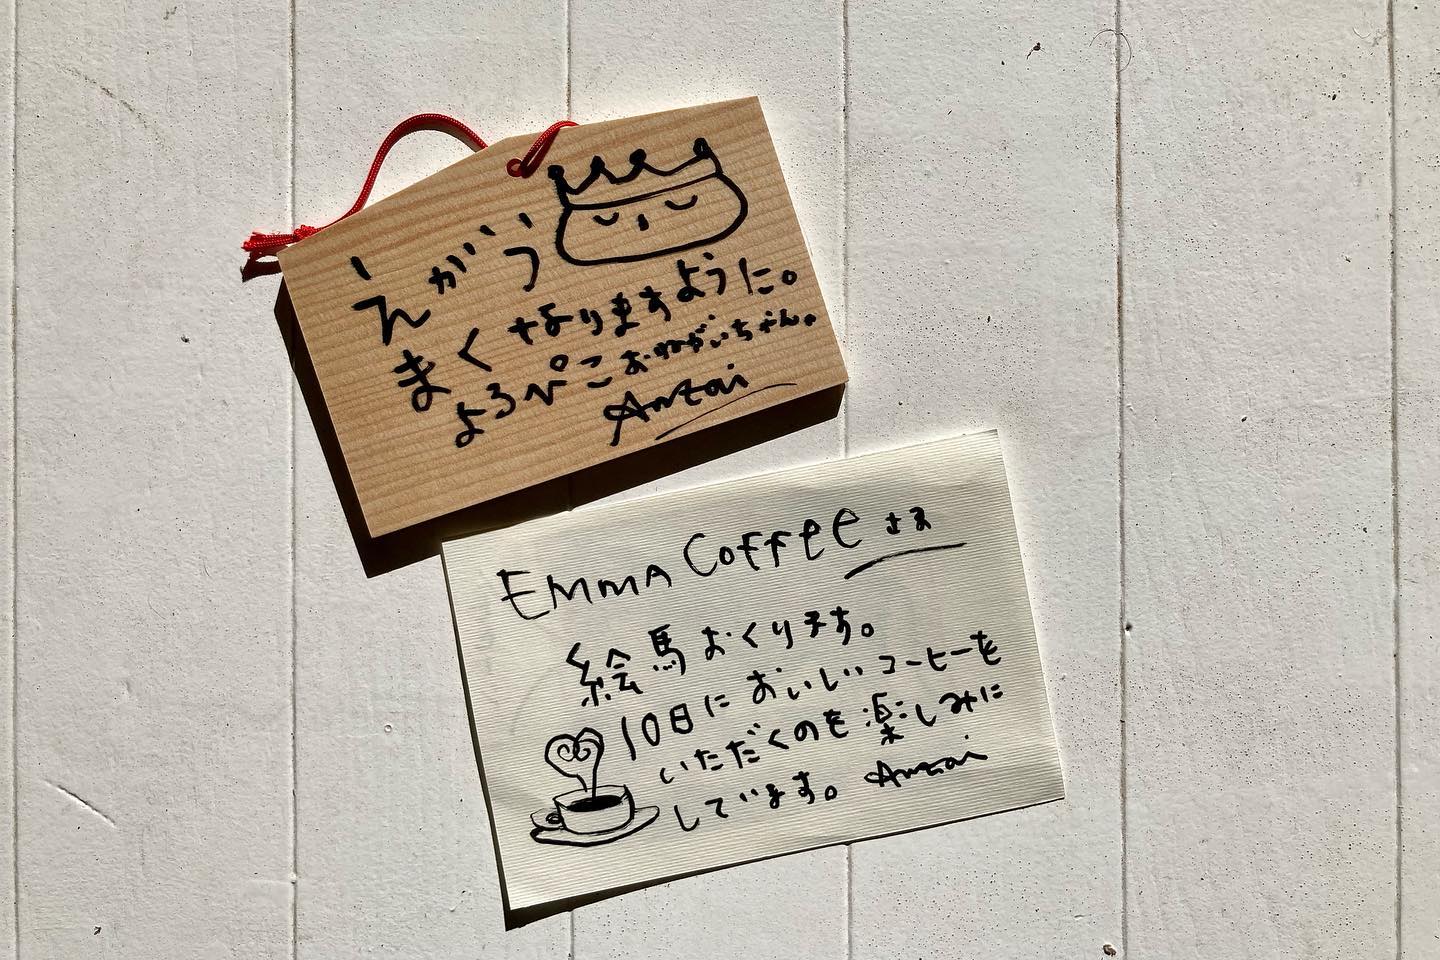 えがう
まくなりますように。
よろぺこおねがいちゃん。
Anzai
EMMA Coffee さま
絵馬おくります。
10日においしいコーヒーを
いただくのを楽しみに
しています。 Anzai